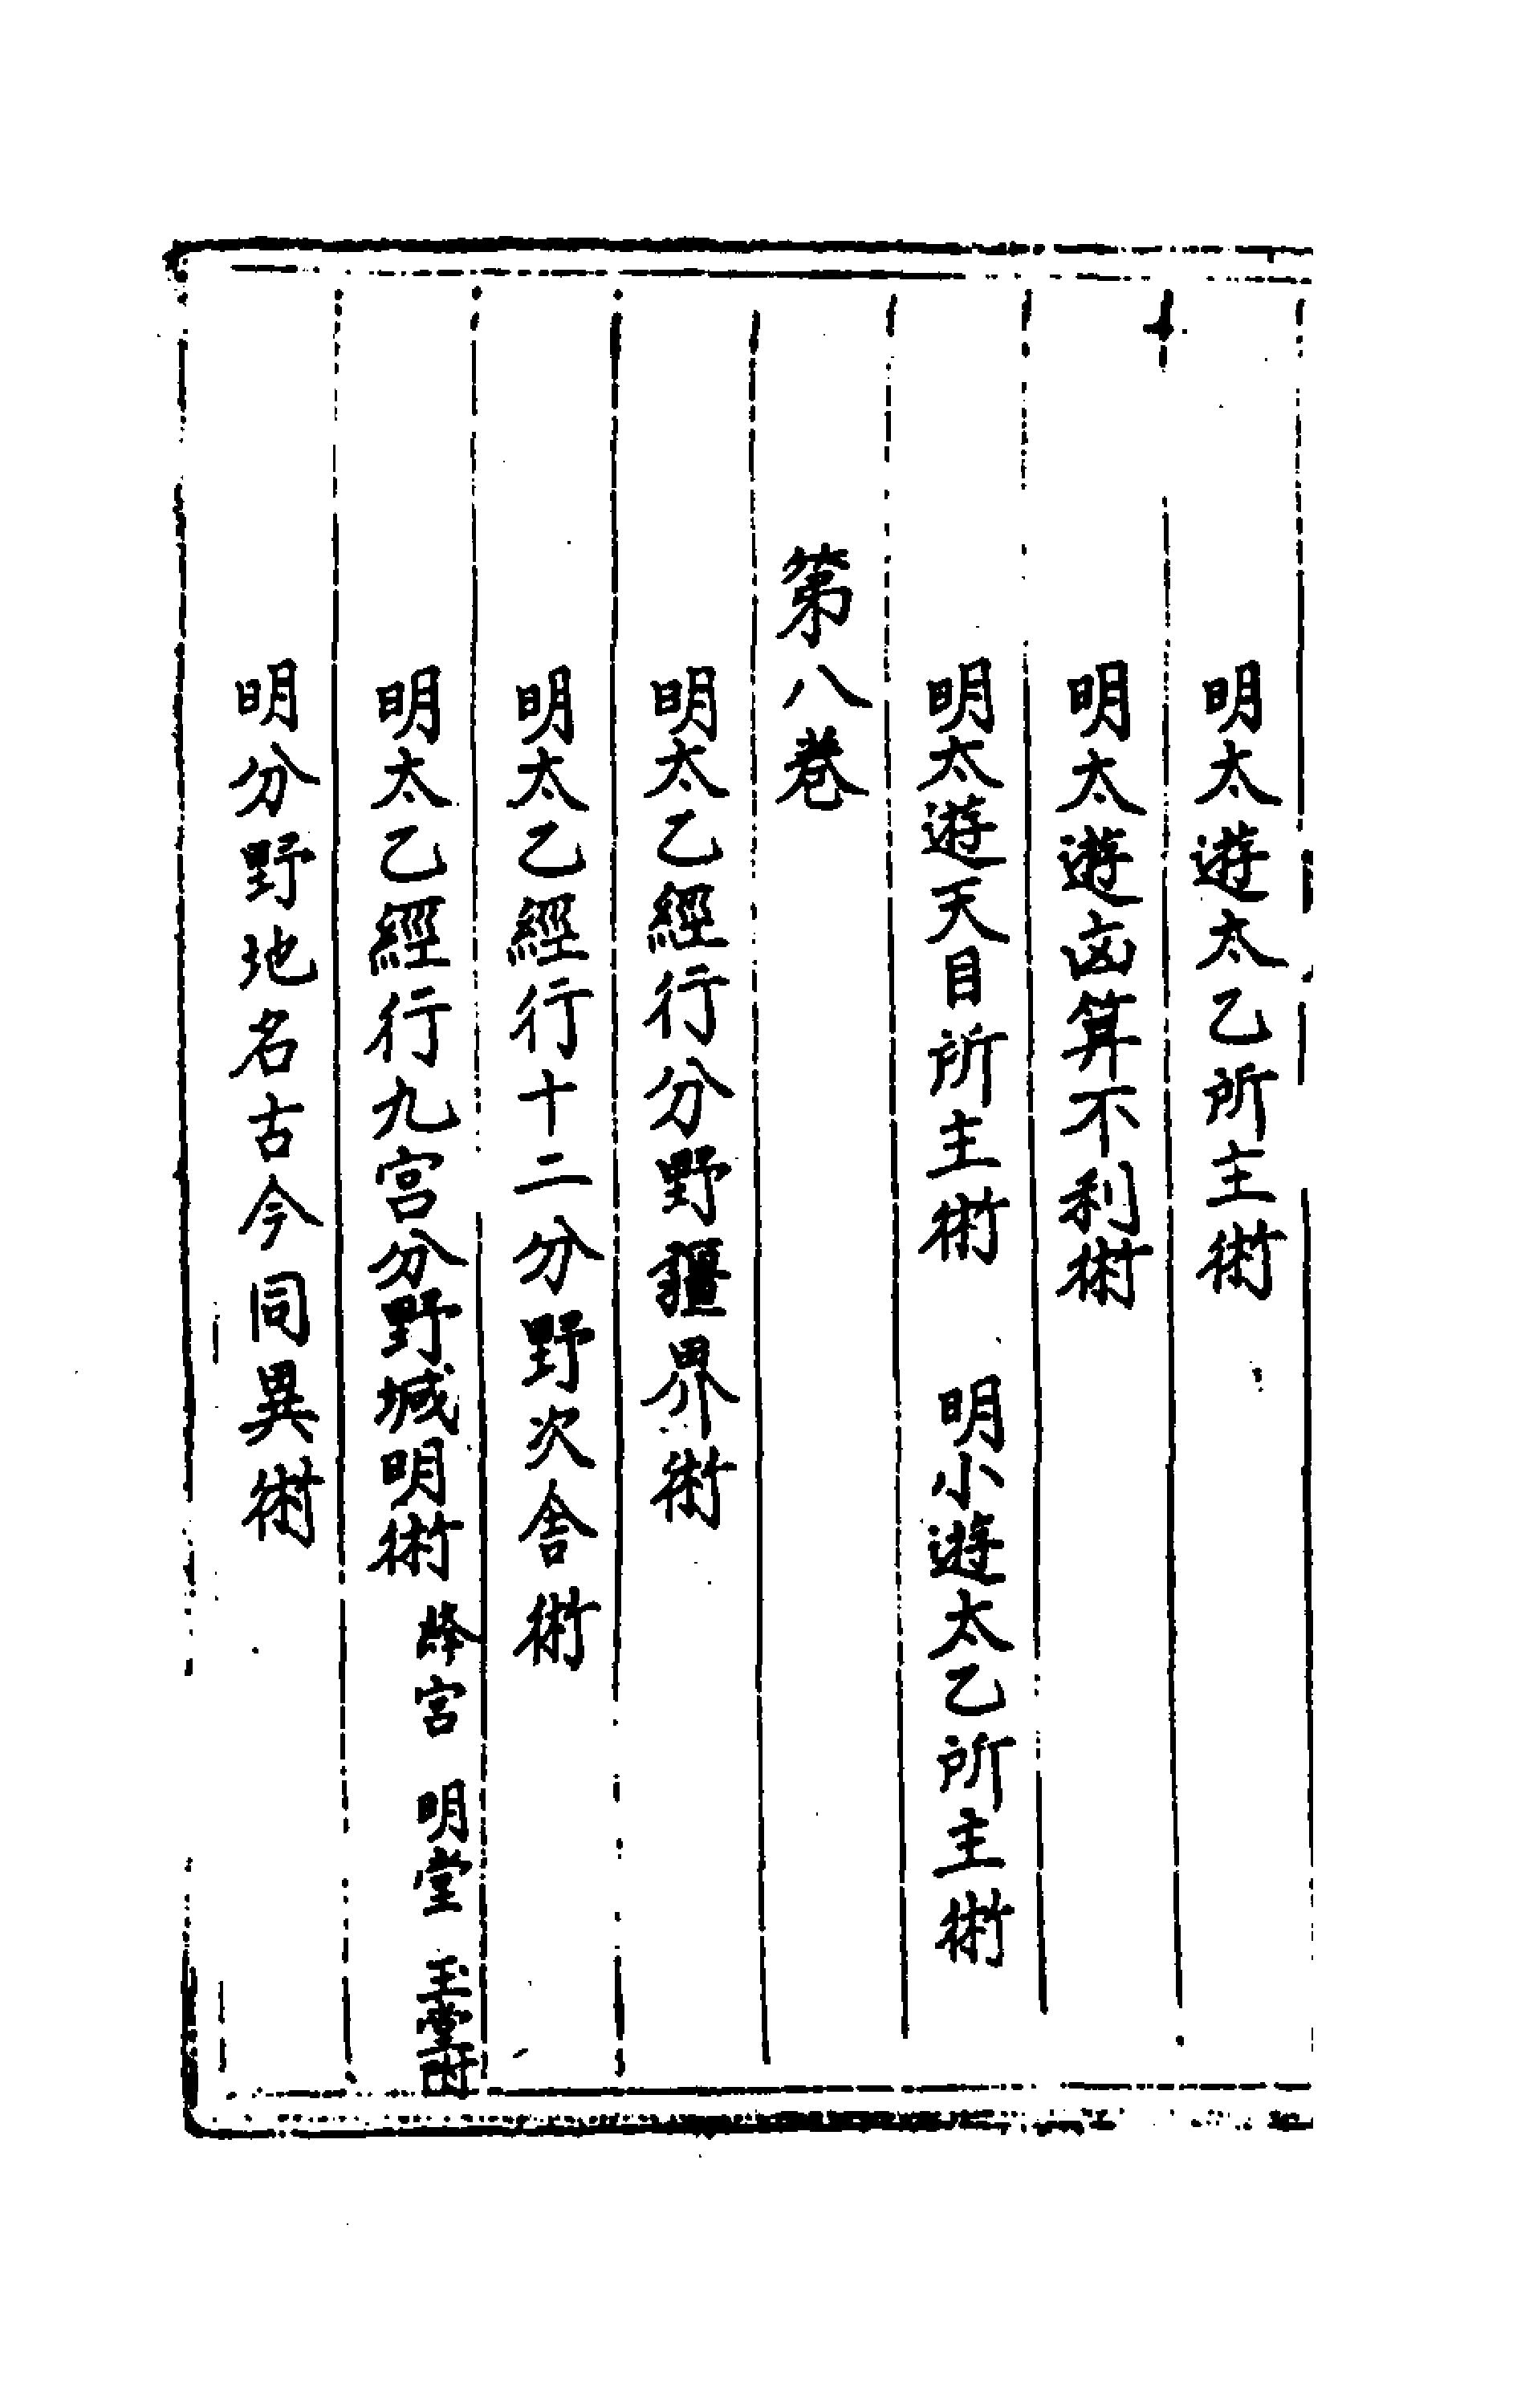 明太遊太乙所主術
明太遊凶算不利術
明太遊天目所主術　明小遊太乙所主術
第八卷
明太乙經行分野疆界術
明太乙經行十二分野次舍術
明太乙經行九宮分野城明術 絳宮 明堂 玉堂附
明分野地名古今同異術